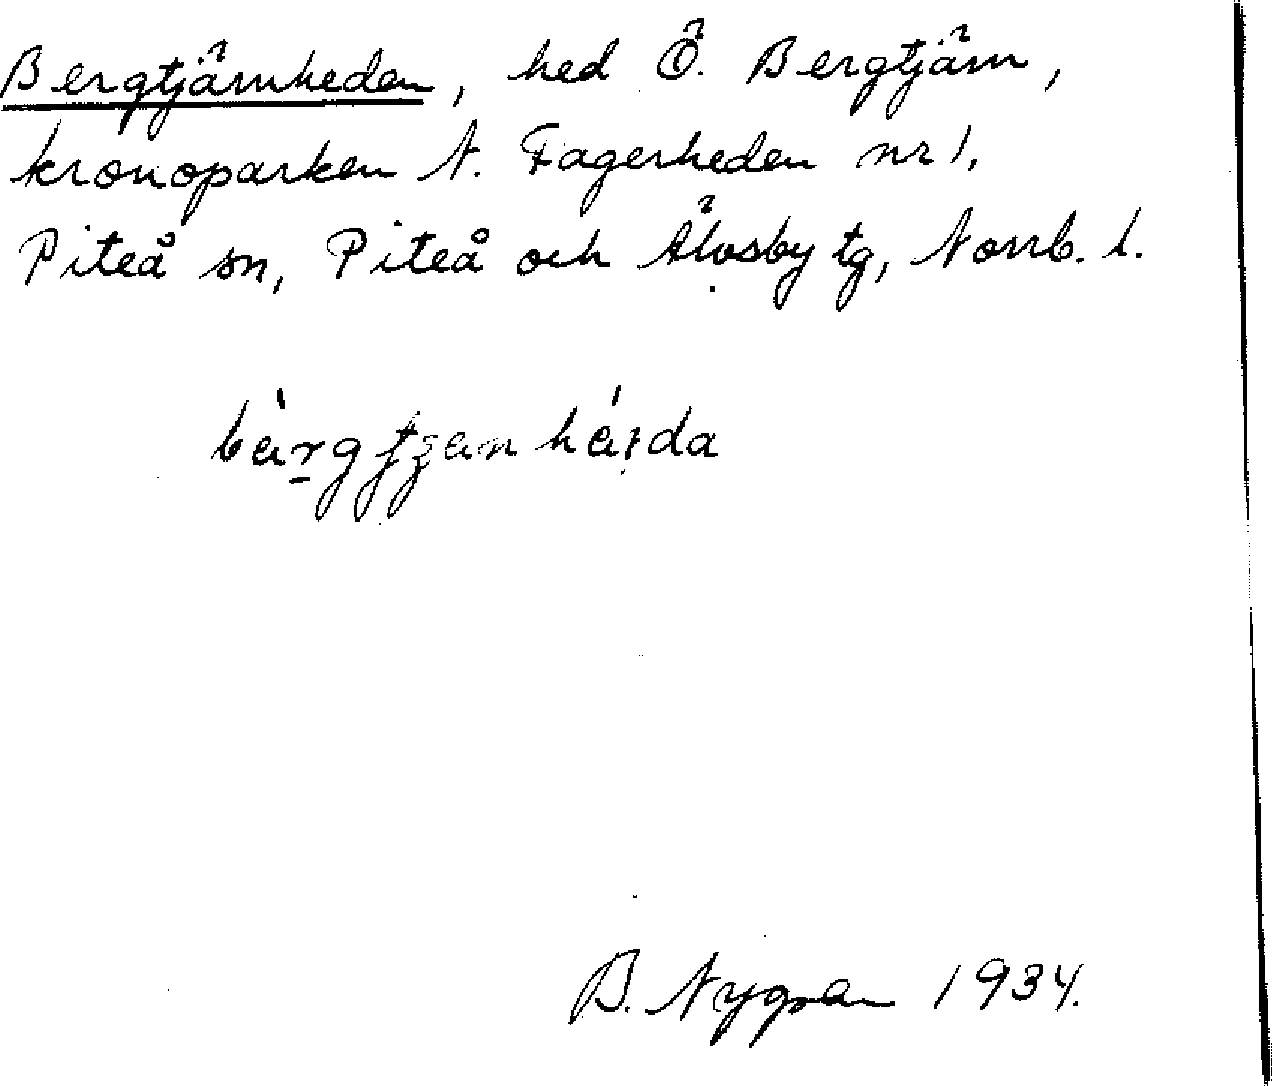 Bergtjärnheden, hed Ö. Bergtjärn,
kronoparken N. Fagerheden nr 1,
Piteå sn, Piteå och Älvsby tg, Norrb. l.
B. Nygren 1934.